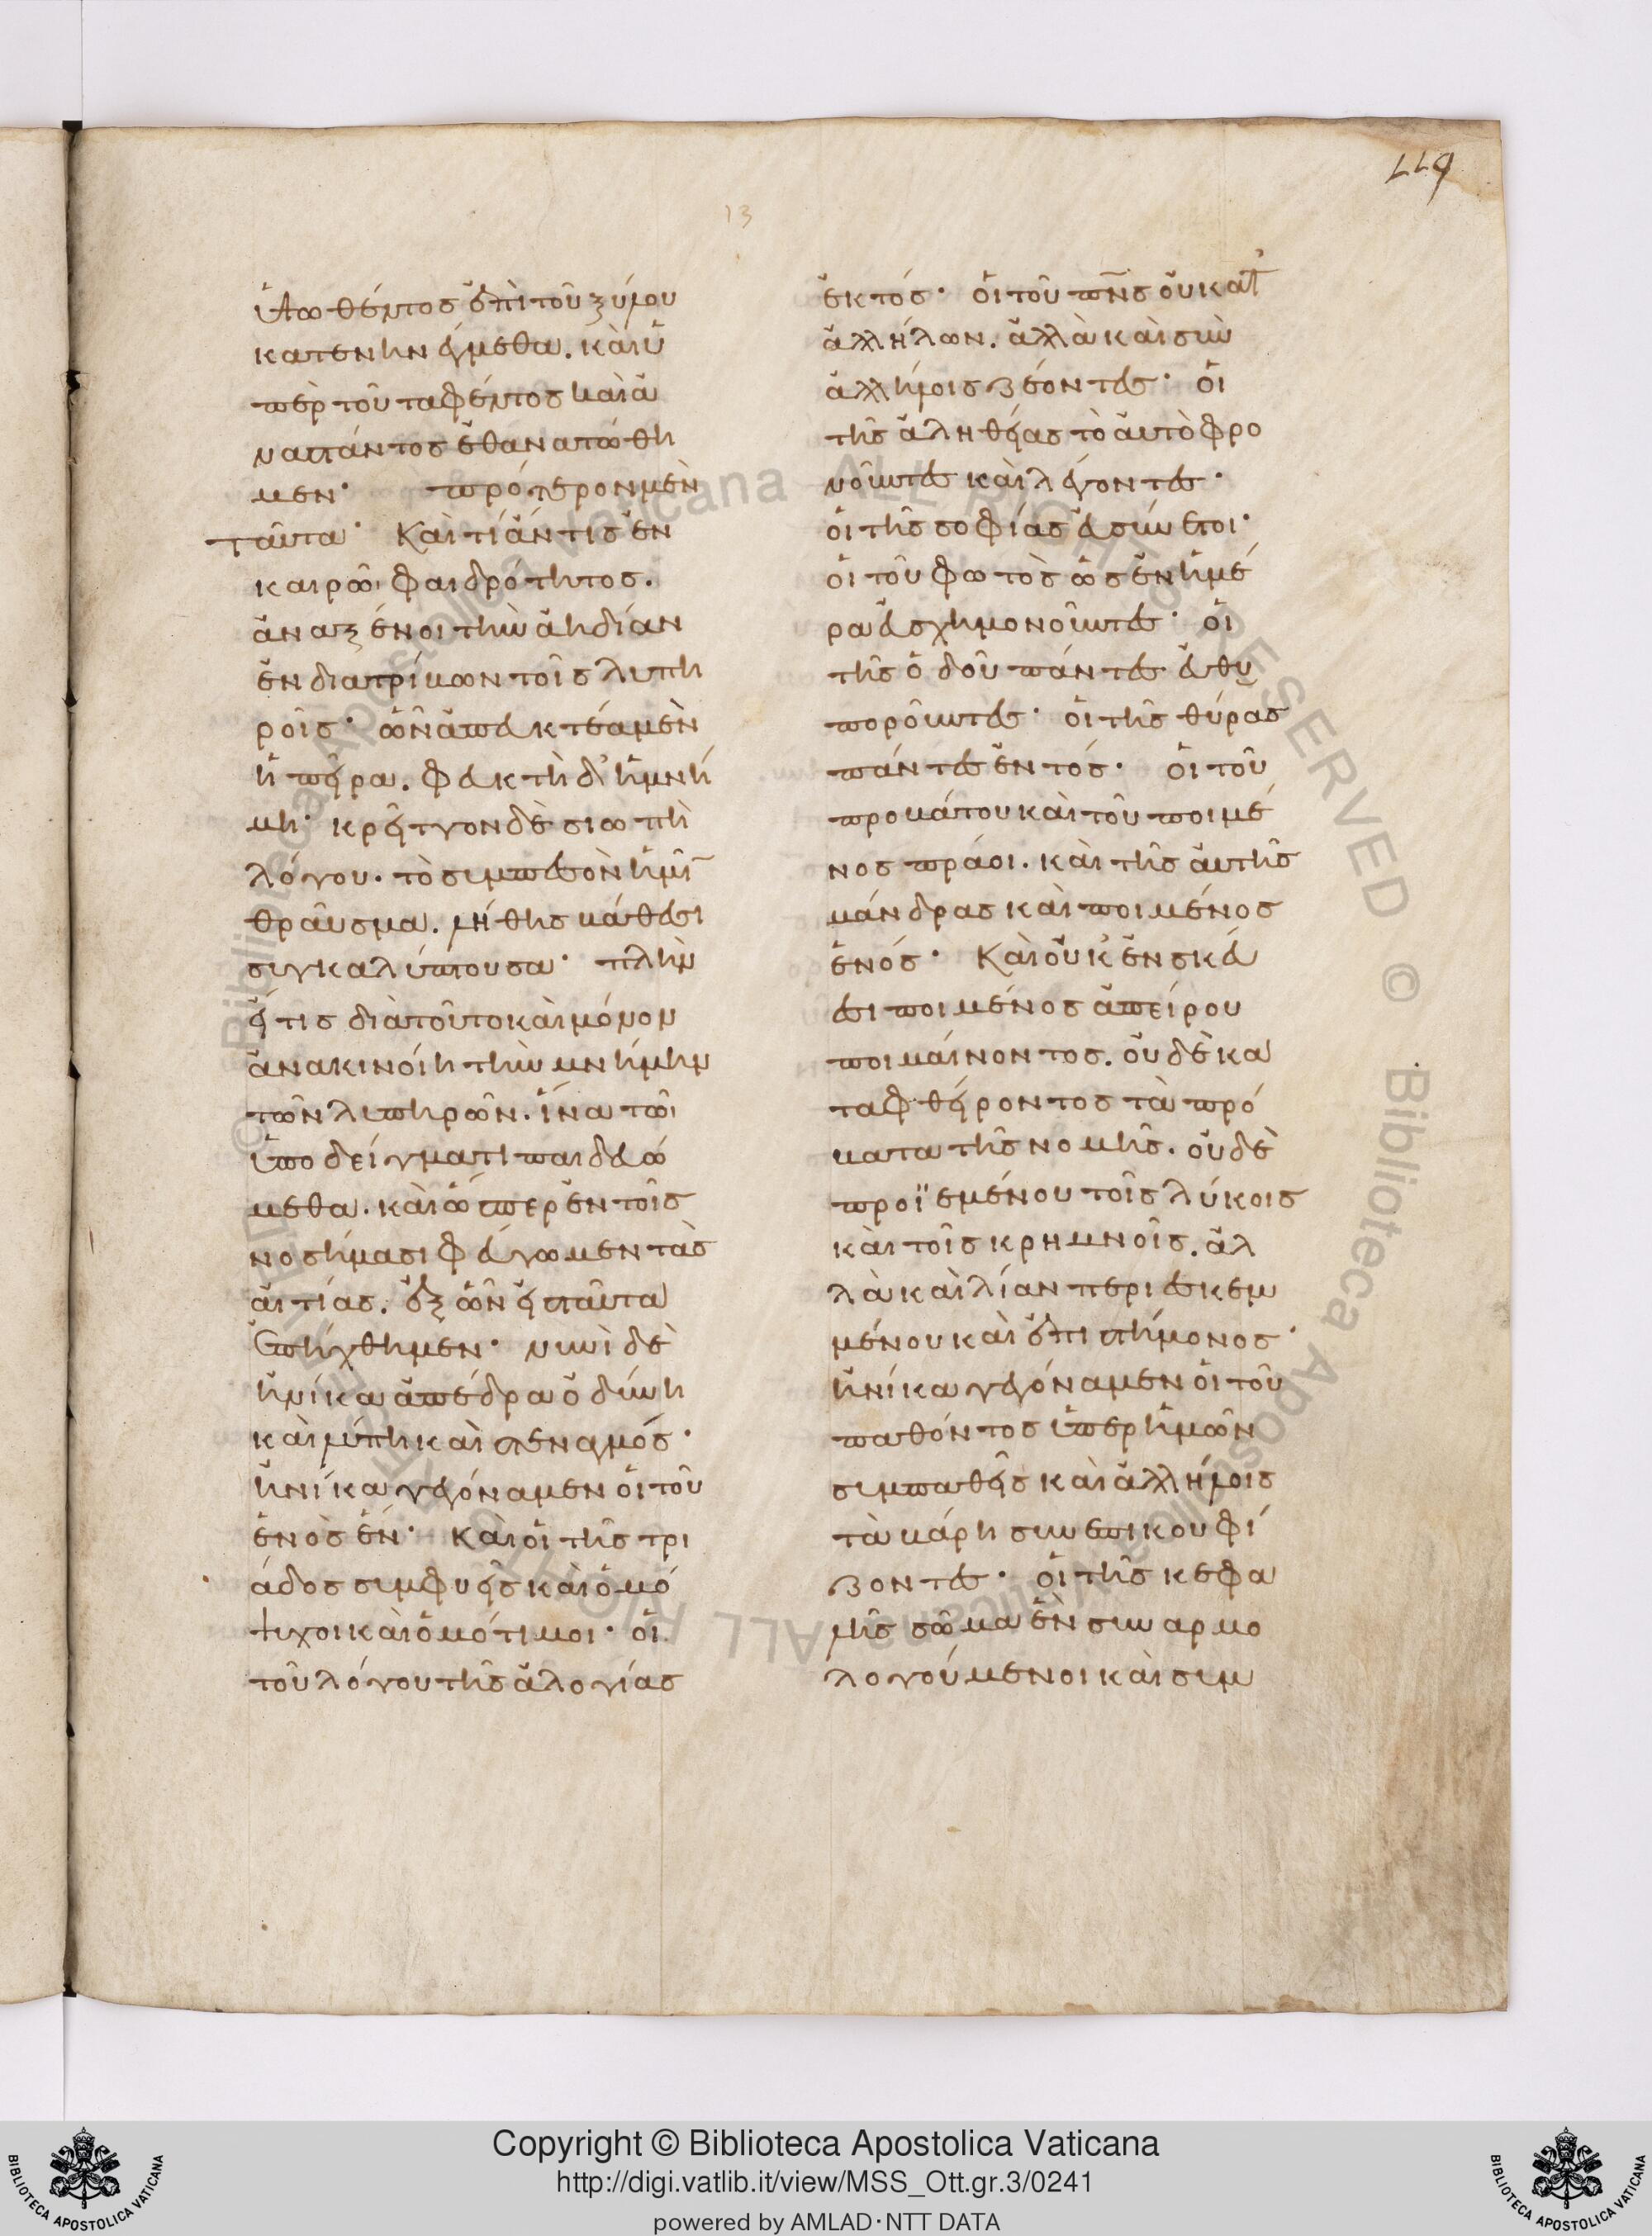 119
13
ὑψωθέντος ἐπὶ τοῦ ξύλου
κατενηνέγμεθα. καὶ ὑ
πὲρ τοῦ ταφέντος καὶ ἀ
ναστάντος ἐθανατώθη
μεν· πρότερον μὲν
ταῦτα· Καὶ τί ἄν τις ἐν
καιρῶι φαιδρότητος.
ἀναξένοι τὴν ἀηδίαν
ἐνδιατρίβων τοῖς λυπη
ροῖς· ὧν ἀπαικτέα μὲν
ἡ πεῖρα. φευκτὴ δ' ἡ μνή
μη· κρεῖττον δὲ σιωπὴ
λόγου. τὸ συμπεσὸν ἡμῖν
θραῦσμα. λήθης βάθεσι
συγκαλύπτουσα· πλὴν
εἴ τις διὰ τοῦτο καὶ μόνον
ἀνακινοίη τὴν μνήμην
τῶν λυπηρῶν. ἵνα τῶι
ὑποδείγματι παιδευώ
μεθα. καὶ ὥσπερ ἐν τοῖς
νοσήμασι φεύγωμεν τὰς
αἰτίας. ἐξ ὧν εἰς ταῦτα
ὑπήχθημεν· νυνὶ δὲ
ἡνίκα ἀπέδρα ὀδύνη
καὶ λύπη καὶ στεναγμός·
ἡνίκα γεγόναμεν οἱ τοῦ
ἑνὸς ἕν· Καὶ οἱ τῆς τρι
άδος συμφυεῖς καὶ ὁμό
ψυχοι καὶ ὁμότιμοι· οἱ
τοῦ λόγου τῆς ἀλογίας
ἐκτός· οἱ τοῦ πνς οὐ κατ'
ἀλλήλων. ἀλλὰ καὶ σὺν
ἀλλήλοις ζέοντες· οἱ
τῆς ἀληθείας τὸ αὐτὸ φρο
νοῦντες καὶ λέγοντες·
οἱ τῆς σοφίας εὐσύνετοι·
οἱ τοῦ φωτὸς ὡς ἐν ἡμέ
ρα εὐσχημονοῦντες· οἱ
τῆς ὁδοῦ πάντες εὐθυ
ποροῦντες· οἱ τῆς θύρας
πάντες ἐντός· οἱ τοῦ
προβάτου καὶ τοῦ ποιμέ
νος πρᾶοι. καὶ τῆς αὐτῆς
μάνδρας καὶ ποιμένος
ἑνός· Καὶ οὐκ ἐν σκεύ
εσι ποιμένος ἀπείρου
ποιμαίνοντος. οὐδὲ κα
ταφθείροντος τὰ πρό
βατα τῆς νομῆς. οὐδὲ
προϊεμένου τοῖς λύκοις
καὶ τοῖς κρημνοῖς. ἀλ
λὰ καὶ λίαν περιεσκεμ
μένου καὶ ἐπιστήμονος·
ἡνίκα γεγόναμεν οἱ τοῦ
παθόντος ὑπὲρ ἡμῶν
συμπαθεῖς καὶ ἀλλήλοις
τὰ βάρη συνεπικουφί
ζοντες· οἱ τῆς κεφα
λῆς σῶμα ἓν συναρμο
λογούμενοι καὶ συμ
Copyright © Biblioteca Apostolica Vaticana
http://digi.vatlib.it/view/MSS_Ott.gr.3/0241
powered by AMLAD·NTT DATA